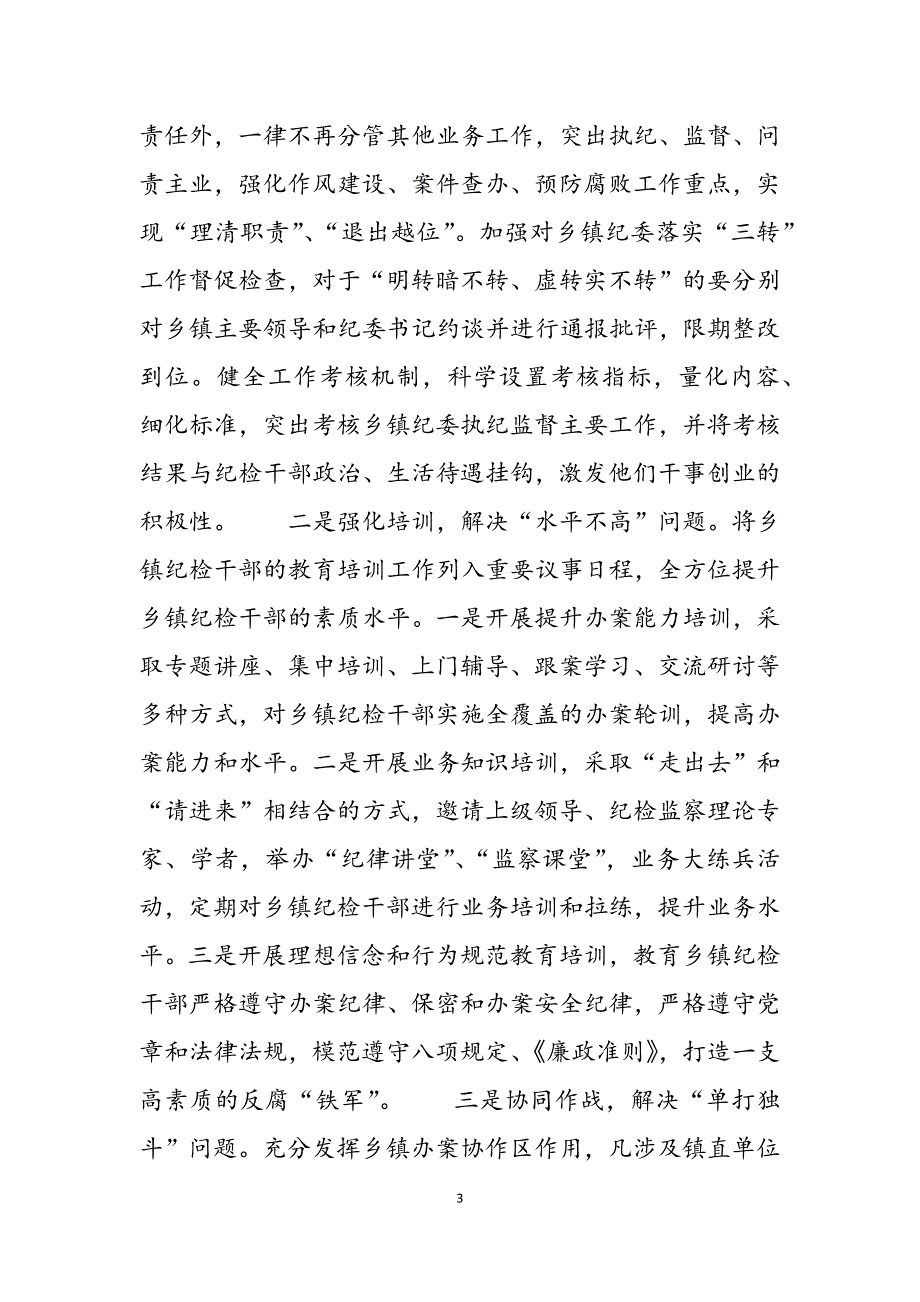 责任外，一律不再分管其他业务工作，突出执纪、监督、问
责主业，强化作风建设、案件查办、预防腐败工作重点，实
现“理清职责”、“退出越位”。加强对乡镇纪委落实“三转”
工作督促检查，对于“明转暗不转、虚转实不转”的要分别
对乡镇主要领导和纪委书记约谈并进行通报批评，限期整改
到位。健全工作考核机制，科学设置考核指标，量化内容、
细化标准，突出考核乡镇纪委执纪监督主要工作，并将考核
结果与纪检干部政治、生活待遇挂钩，激发他们干事创业的
积极性。　　二是强化培训，解决“水平不高”问题。将乡
镇纪检干部的教育培训工作列入重要议事日程，全方位提升
乡镇纪检干部的素质水平。一是开展提升办案能力培训，采
取专题讲座、集中培训、上门辅导、跟案学习、交流研讨等
多种方式，对乡镇纪检干部实施全覆盖的办案轮训，提高办
案能力和水平。二是开展业务知识培训，采取“走出去”和
“请进来”相结合的方式，邀请上级领导、纪检监察理论专
家、学者，举办“纪律讲堂”、“监察课堂”，业务大练兵活
动，定期对乡镇纪检干部进行业务培训和拉练，提升业务水
平。三是开展理想信念和行为规范教育培训，教育乡镇纪检
干部严格遵守办案纪律、保密和办案安全纪律，严格遵守党
章和法律法规，模范遵守八项规定、《廉政准则》，打造一支
高素质的反腐“铁军”。　　三是协同作战，解决“单打独
斗”问题。充分发挥乡镇办案协作区作用，凡涉及镇直单位
3